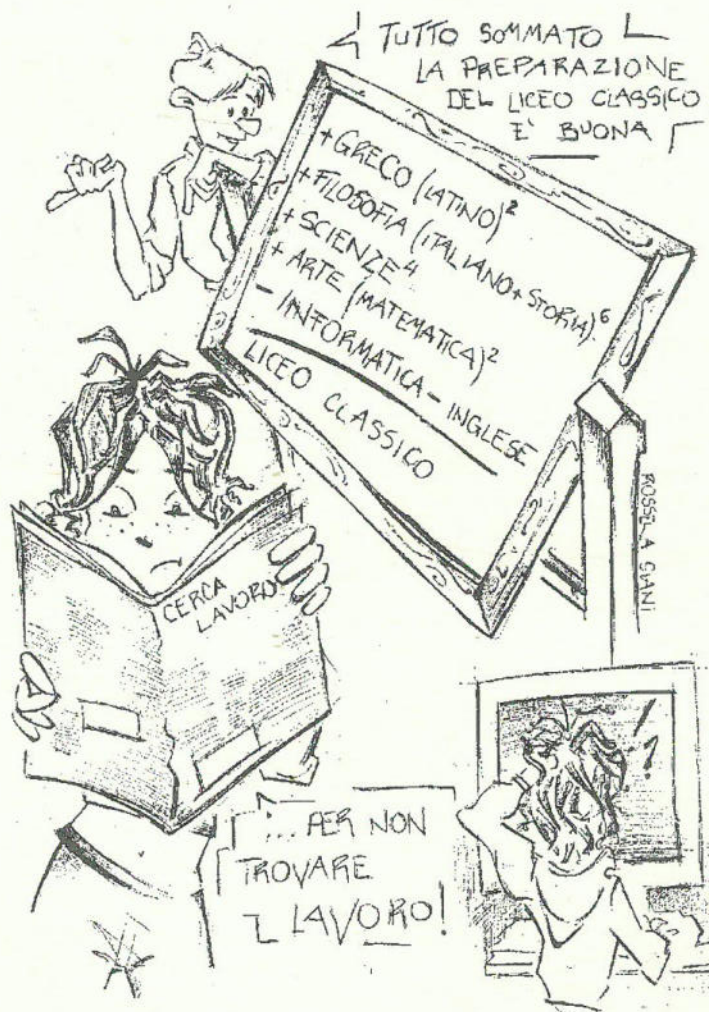 TUTTO SOMMATO
LA PREPARAZIONE
DEL LICEO CLASSICO
E' BUONA
+ GRECO (LATINO)²
+ FILOSOFIA (ITALIANO + STORIA)⁶
+ SCIENZE⁴
+ ARTE (MATEMATICA)²
- INFORMATICA - INGLESE
LICEO CLASSICO
CERCA
LAVORO
... PER NON
TROVARE
LAVORO!
!
?